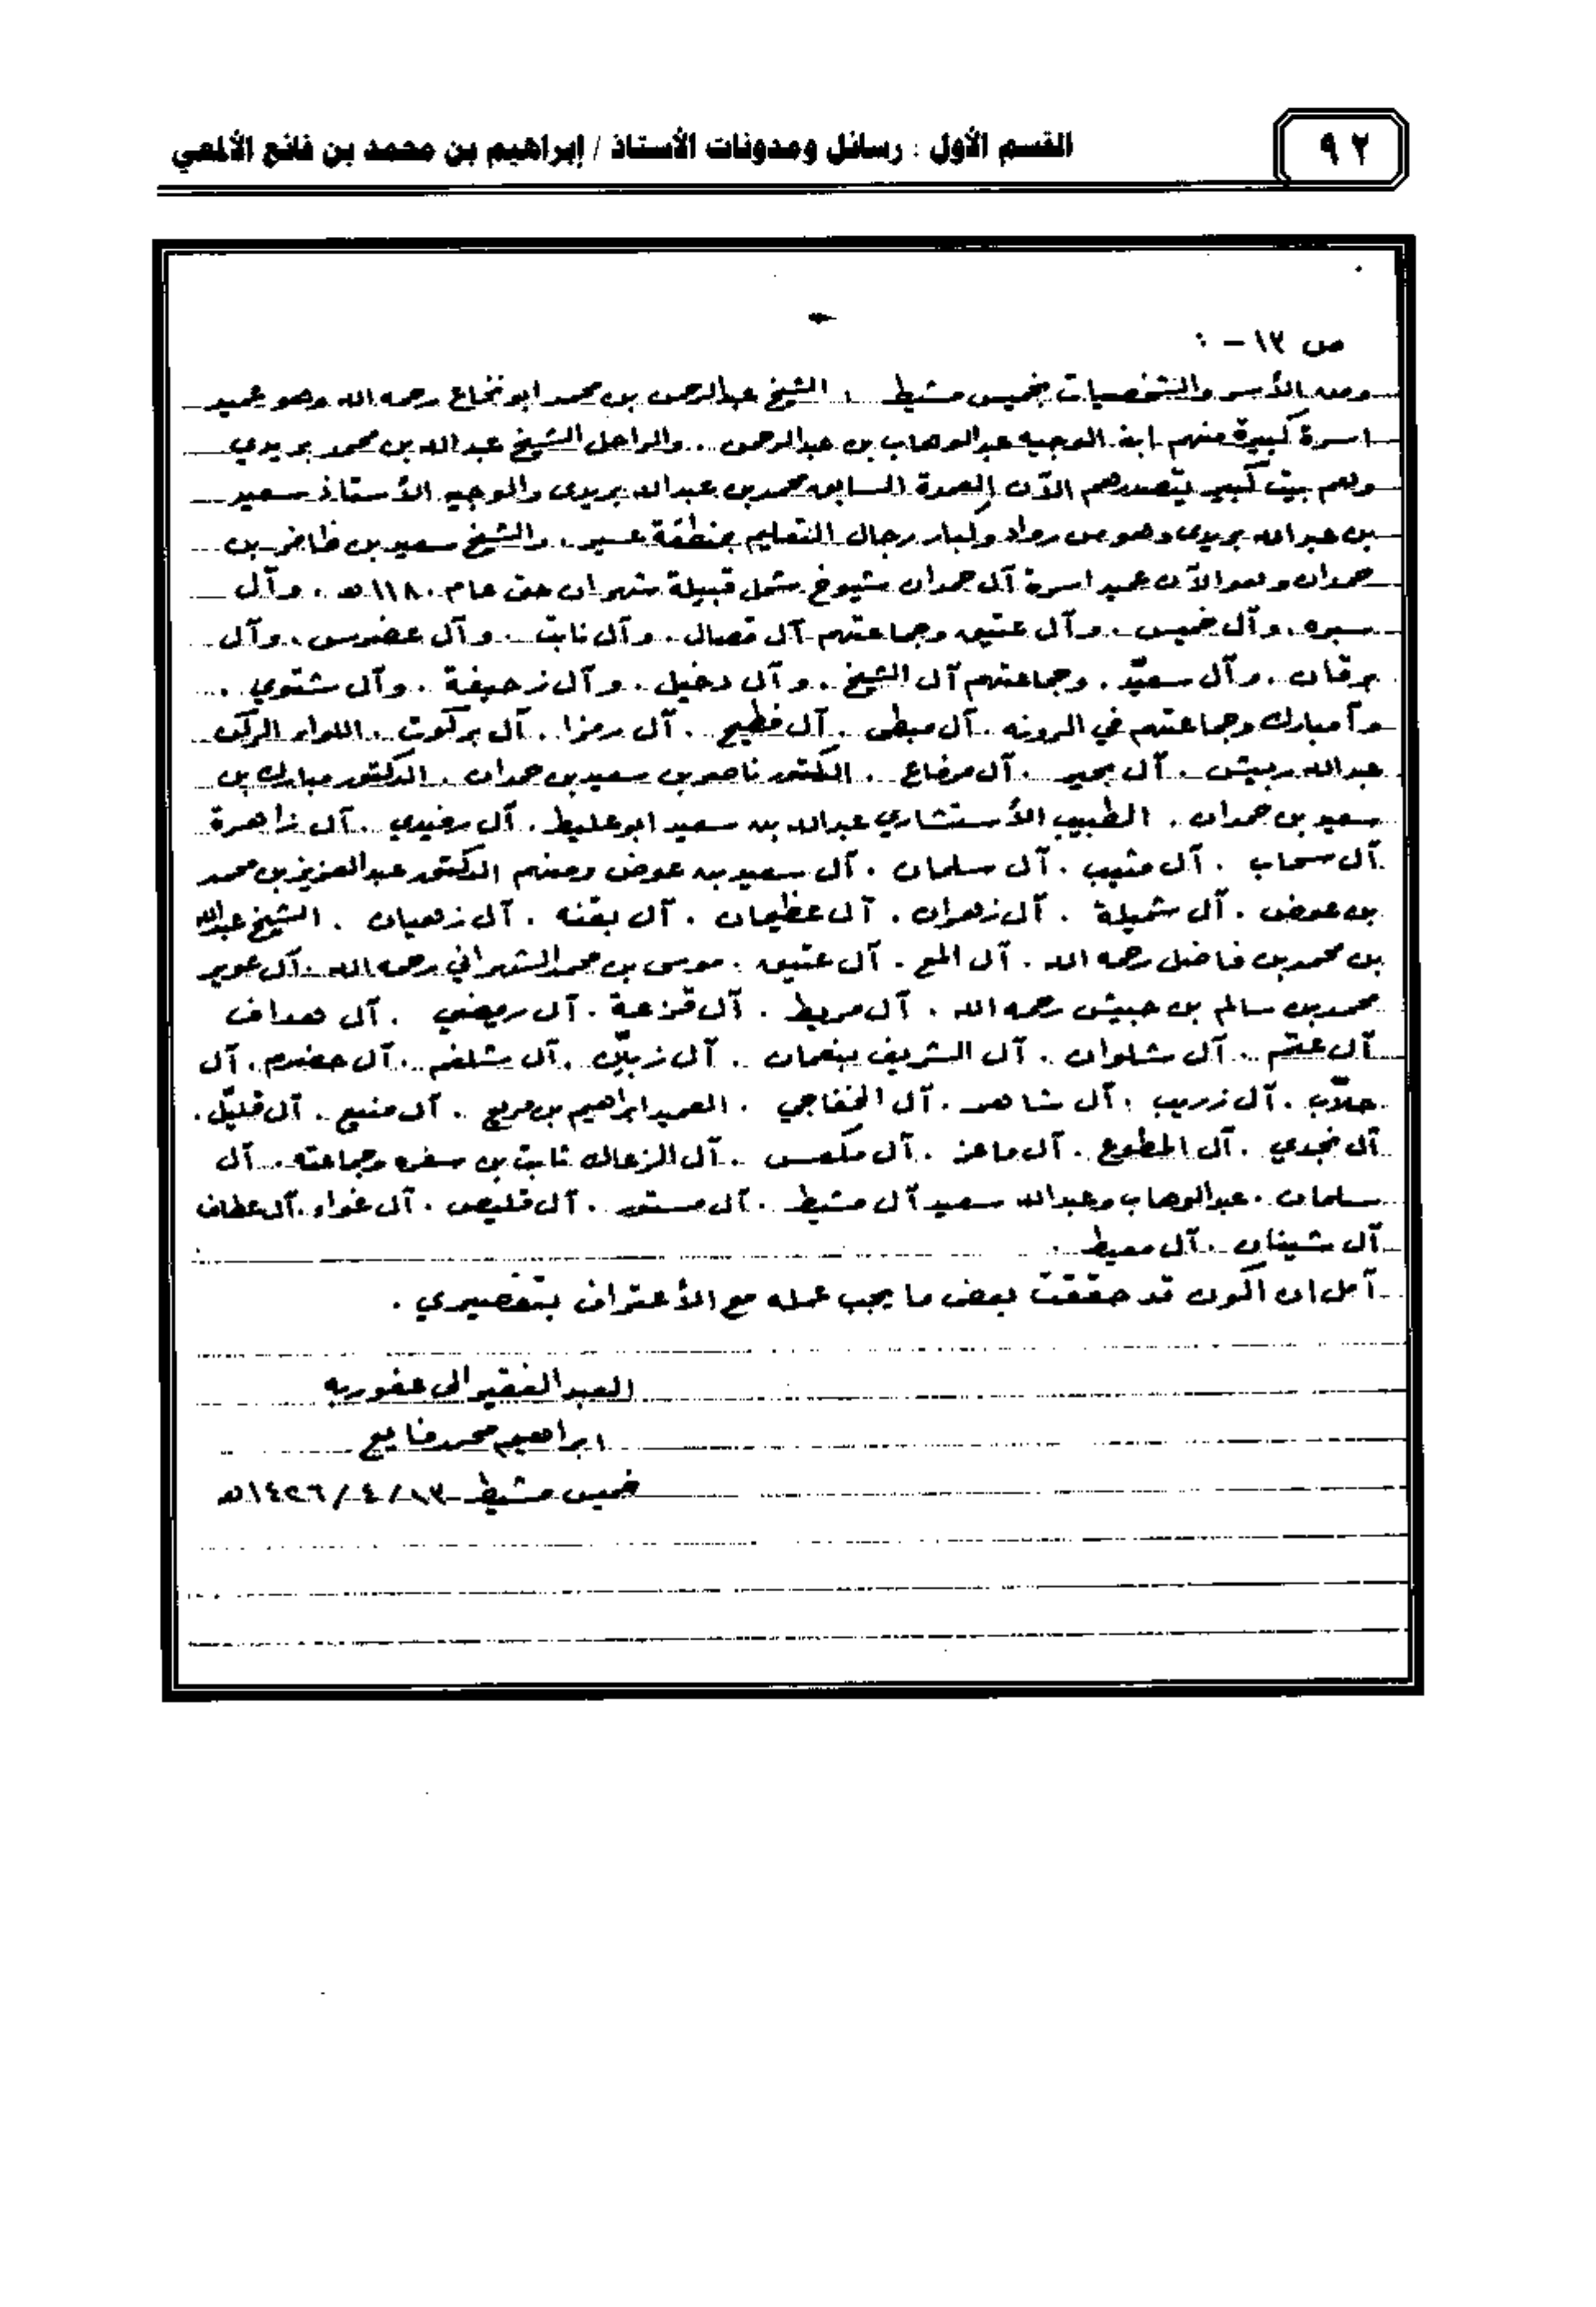 ٩٢
القسم الأول : رسائل ومدونات الأستاذ / إبراهيم بن محمد بن فائع الألمعي
ص ١٣ -
ومن الأسر والشخصيات بخميس مشيط . الشيخ عبدالرحمن بن محمد ابو نخاع رحمه الله وهو عميد
اسرة كبيرة منهم ابنه الوجيه عبدالوهاب بن عبدالرحمن .. والراحل الشيخ عبدالله بن محمد بريدي
ولهم بيت كبير يتصدرهم الآن العمدة السابق محمد بن عبدالله بريدي والوجيه الأستاذ سعيد
بن عبدالله بريدي وهو من رواد وكبار رجال التعليم بمنطقة عسير . والشيخ سعيد بن ظافر بن
حمدان وهو الآن عميد اسرة آل حمدان شيوخ شمل قبيلة شهران حتى عام ١١٨٠هـ . وآل
سبره . وآل خميس . وآل عتيق وجماعتهم آل قصال . وآل ثابت . وآل عضوس . وآل
برقان . وآل سعيّد . وجماعتهم آل الشيخ . وآل دخيل . وآل زحيفة . وآل شتوي .
وآ مبارك وجماعتهم في الرونه . آل مبطي . آل فطيح . آل رمزا . آل بركوت . اللواء الركن
عبدالله ربيش . آل بحير . آل مرضاع . الدكتور ناصر بن سعيد بن حمدان . الدكتور مبارك بن
سعيد بن حمدان . الطبيب الأستشاري عبدالله بن سعيد ابو عليط . آل رفيدي . آل زاهرة
آل سحاب . آل منيب . آل سلمان . آل سعيد بن عوض ومنهم الدكتور عبدالعزيز بن محمد
بن عوض . آل شميلة . آل زهران . آل عظيمان . آل بقنه . آل زهيان . الشيخ عبدالله
بن محمد بن فاضل رحمه الله . آل المع . آل عتيق . موسى بن محمد الشهراني رحمه الله . آل عوير
محمد بن سالم بن حبيش رحمه الله . آل مريط . آل قزعة . آل رميضي . آل هداف
آل عثم . آل شلوان . آل الشريف بنعمان . آل زبيّن . آل شلغم . آل حضرم . آل
حلاّب . آل زريب . آل شاهر . آل الخفاجي . العميد ابراهيم بن مريع . آل منيع . آل قليّل .
آل نجدي . آل المطوع . آل ماعز . آل مكعس . آل الزعاله ثابت بن سفره وجماعته . آل
سلمان . عبدالوهاب وعبدالله سعيد آل مشيط . آل مستور . آل قليص . آل غواء . آل عطاف
آل شينان . آل معيط .
آمل ان اكون قد حققت بعض ما يجب عمله مع الأعتراف بتقصيري .
العبد الفقير الى عفو ربه
ابراهيم محمد فايع
خميس مشيط ١٣ / ٤ / ١٤٢٦هـ